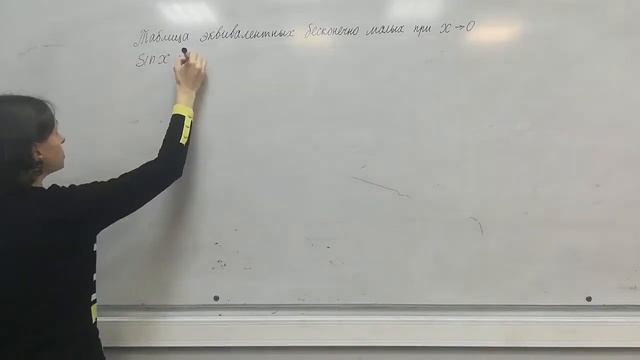 Таблица эквивалентных бесконечно малых при x→0
Sin x